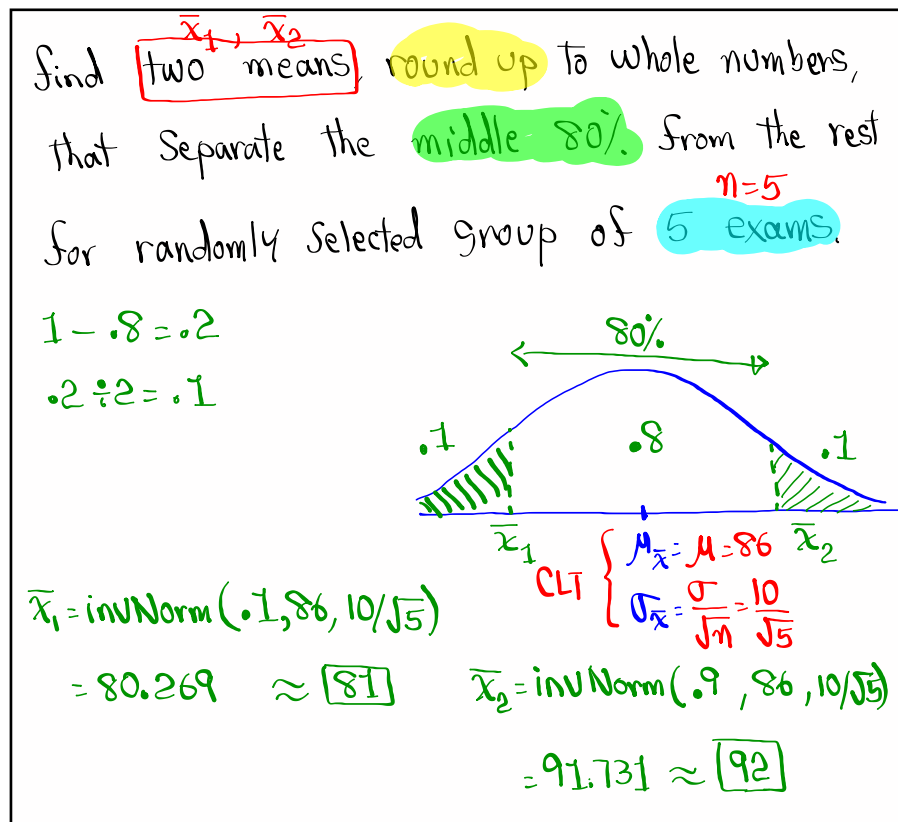 x̄₁, x̄₂
find two means, round up to whole numbers,
that separate the middle 80% from the rest
n=5
for randomly selected group of 5 exams.
1 - .8 = .2
.2 ÷ 2 = .1
80%
.1 .8 .1
x̄₁ x̄₂
CLT { μx̄ = μ = 86
σx̄ = σ/√n = 10/√5
x̄₁ = invNorm(.1, 86, 10/√5)
= 80.269 ≈ 81
x̄₂ = invNorm(.9, 86, 10/√5)
= 91.731 ≈ 92